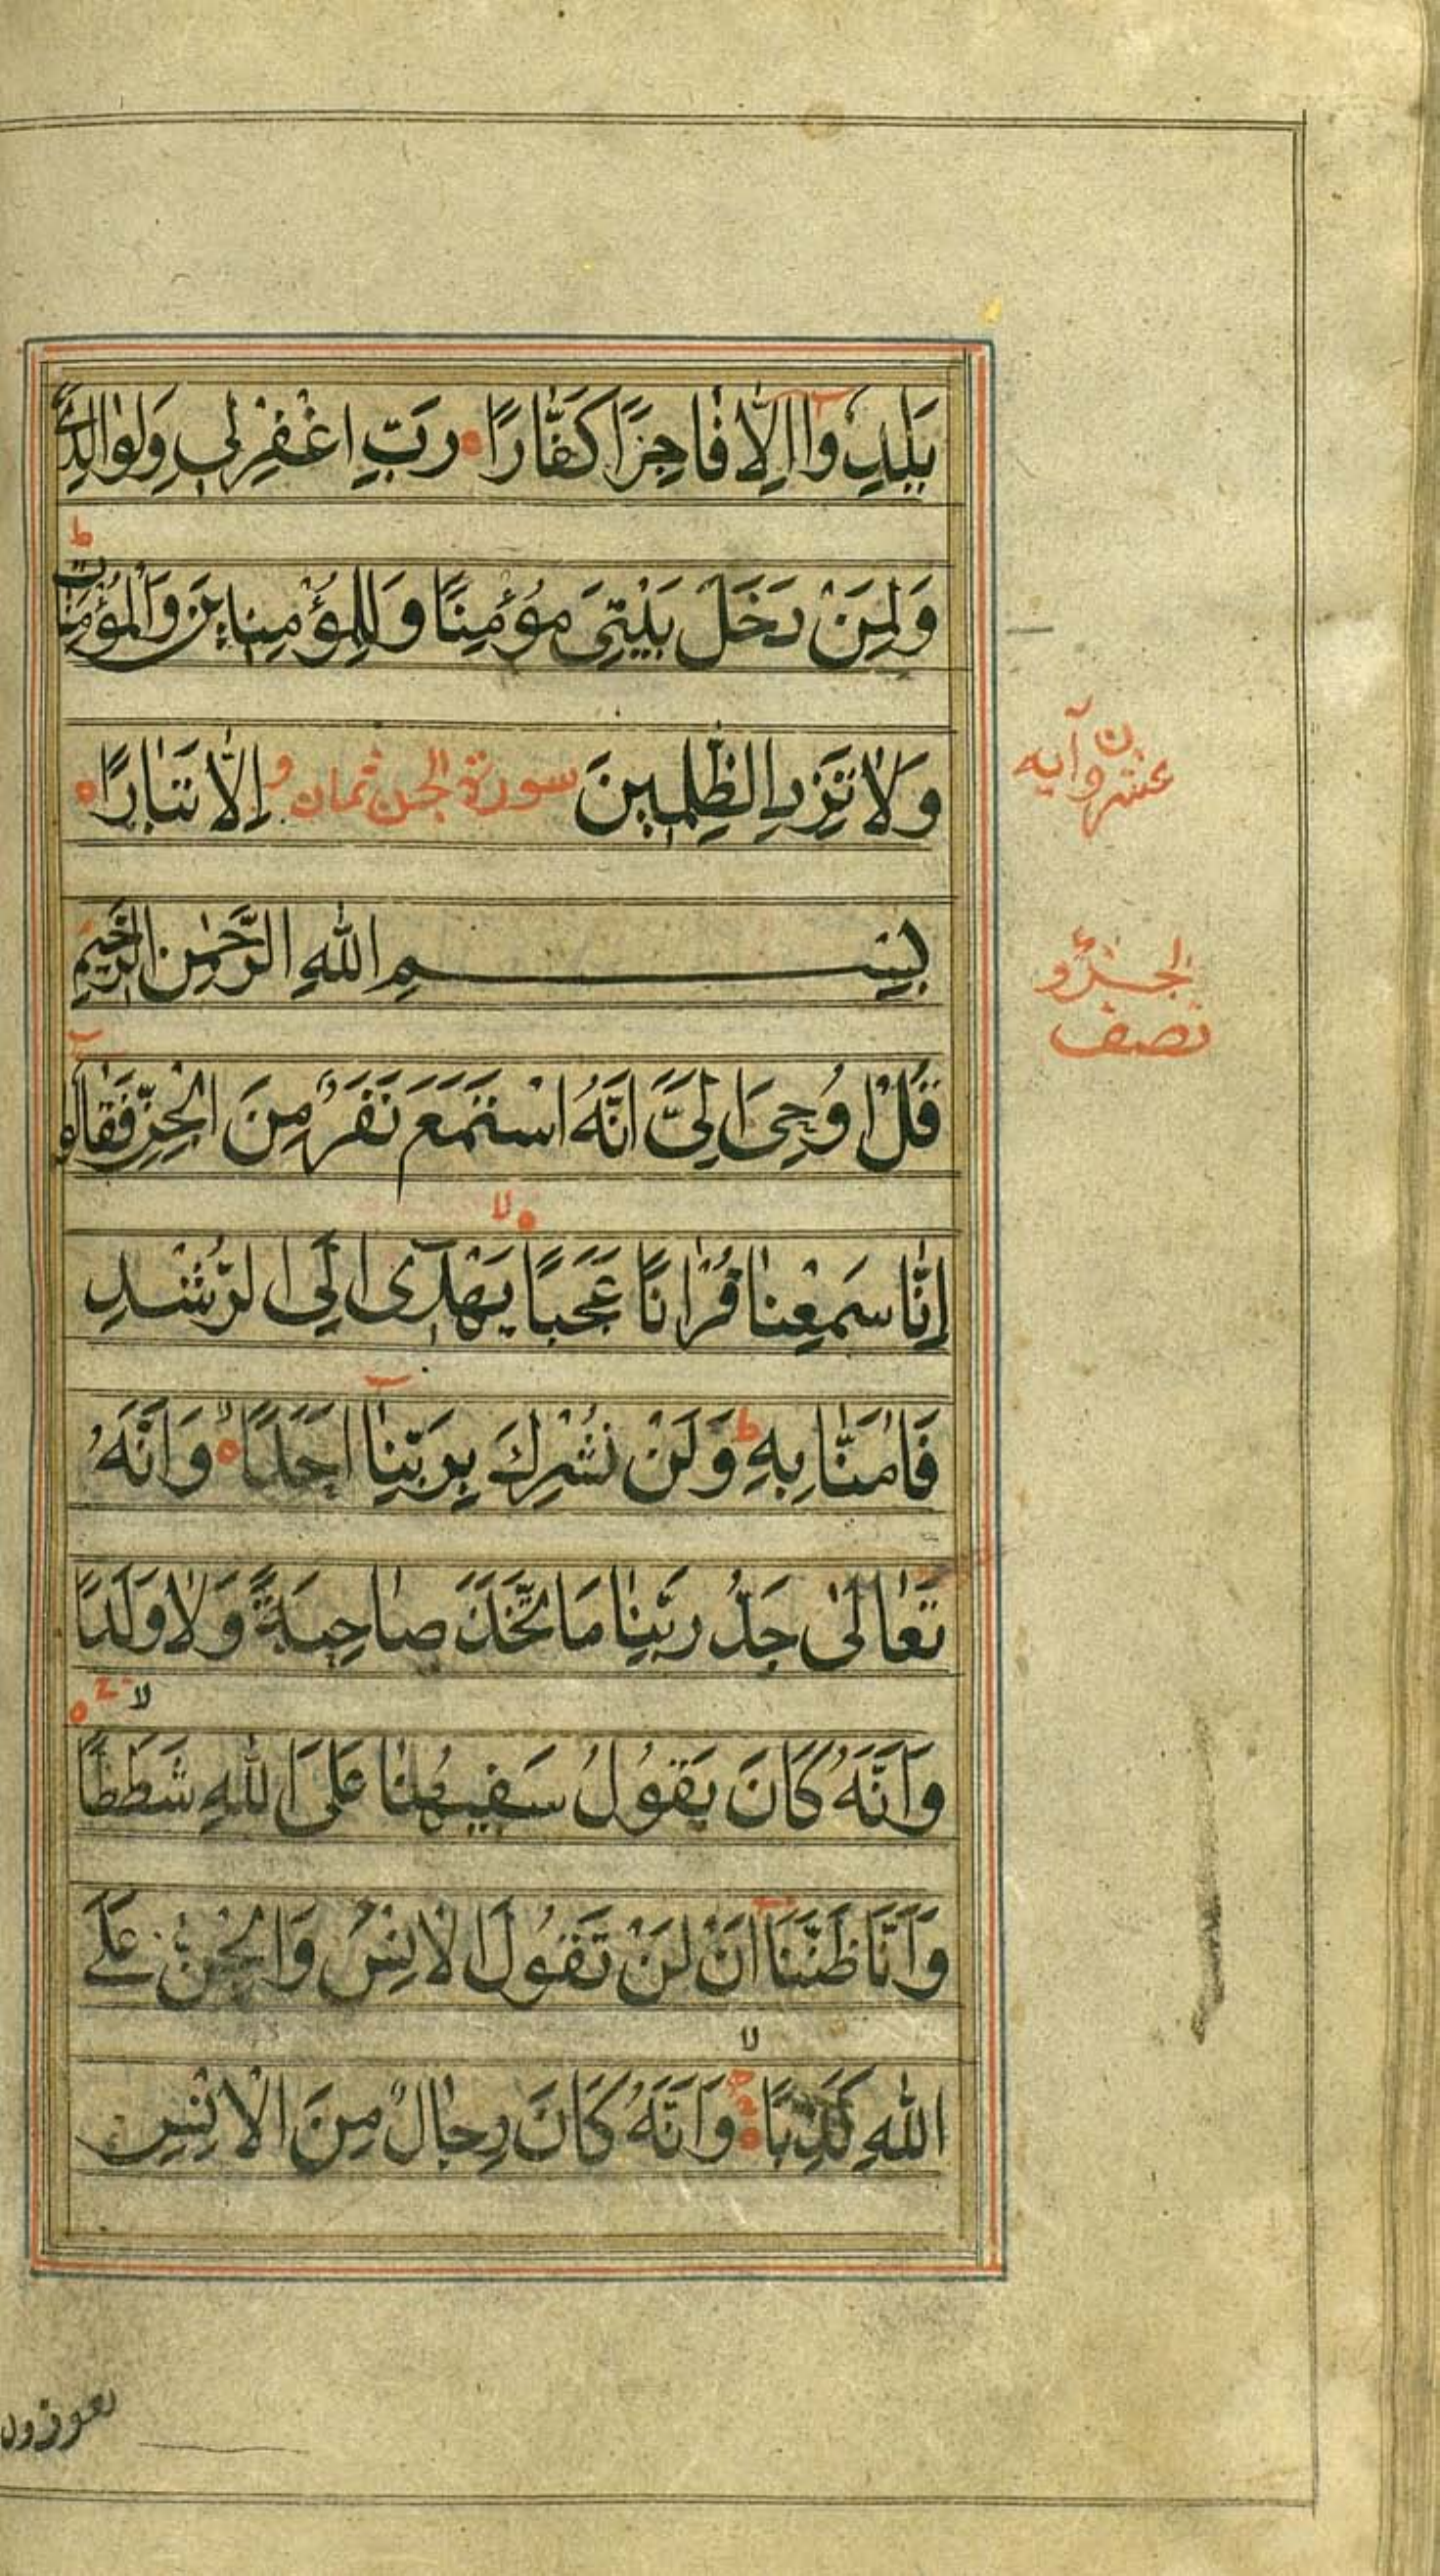 يَلِدُوا اِلَّا فَاجِرًا كَفَّارًا رَبِّ اغْفِرْلِي وَلِوَالِدَيَّ
وَلِمَنْ دَخَلَ بَيْتِيَ مُؤْمِنًا وَلِلْمُؤْمِنِينَ وَالْمُؤْمِنَاتِ ط
وَلَا تَزِدِ الظّٰلِمِينَ سورة الجن ثمان و اِلَّا تَبَارًا
عشرون آيه
بِسْمِ اللّٰهِ الرَّحْمٰنِ الرَّحِيمِ
الجزو
نصف
قُلْ اُوحِيَ اِلَيَّ اَنَّهُ اسْتَمَعَ نَفَرٌ مِنَ الْجِنِّ فَقَالُوا
اِنَّا سَمِعْنَا قُرْاٰنًا عَجَبًا لا يَهْدِي اِلَى الرُّشْدِ
فَاٰمَنَّا بِهِ ط وَلَنْ نُشْرِكَ بِرَبِّنَا اَحَدًا لا وَاَنَّهُ
تَعَالٰى جَدُّ رَبِّنَا مَا اتَّخَذَ صَاحِبَةً وَلَا وَلَدًا لا
وَاَنَّهُ كَانَ يَقُولُ سَفِيهُنَا عَلَى اللّٰهِ شَطَطًا
وَاَنَّا ظَنَنَّا اَنْ لَنْ تَقُولَ الْاِنْسُ وَالْجِنُّ عَلَى
اللّٰهِ كَذِبًا لا وَاَنَّهُ كَانَ رِجَالٌ مِنَ الْاِنْسِ
يعوذون